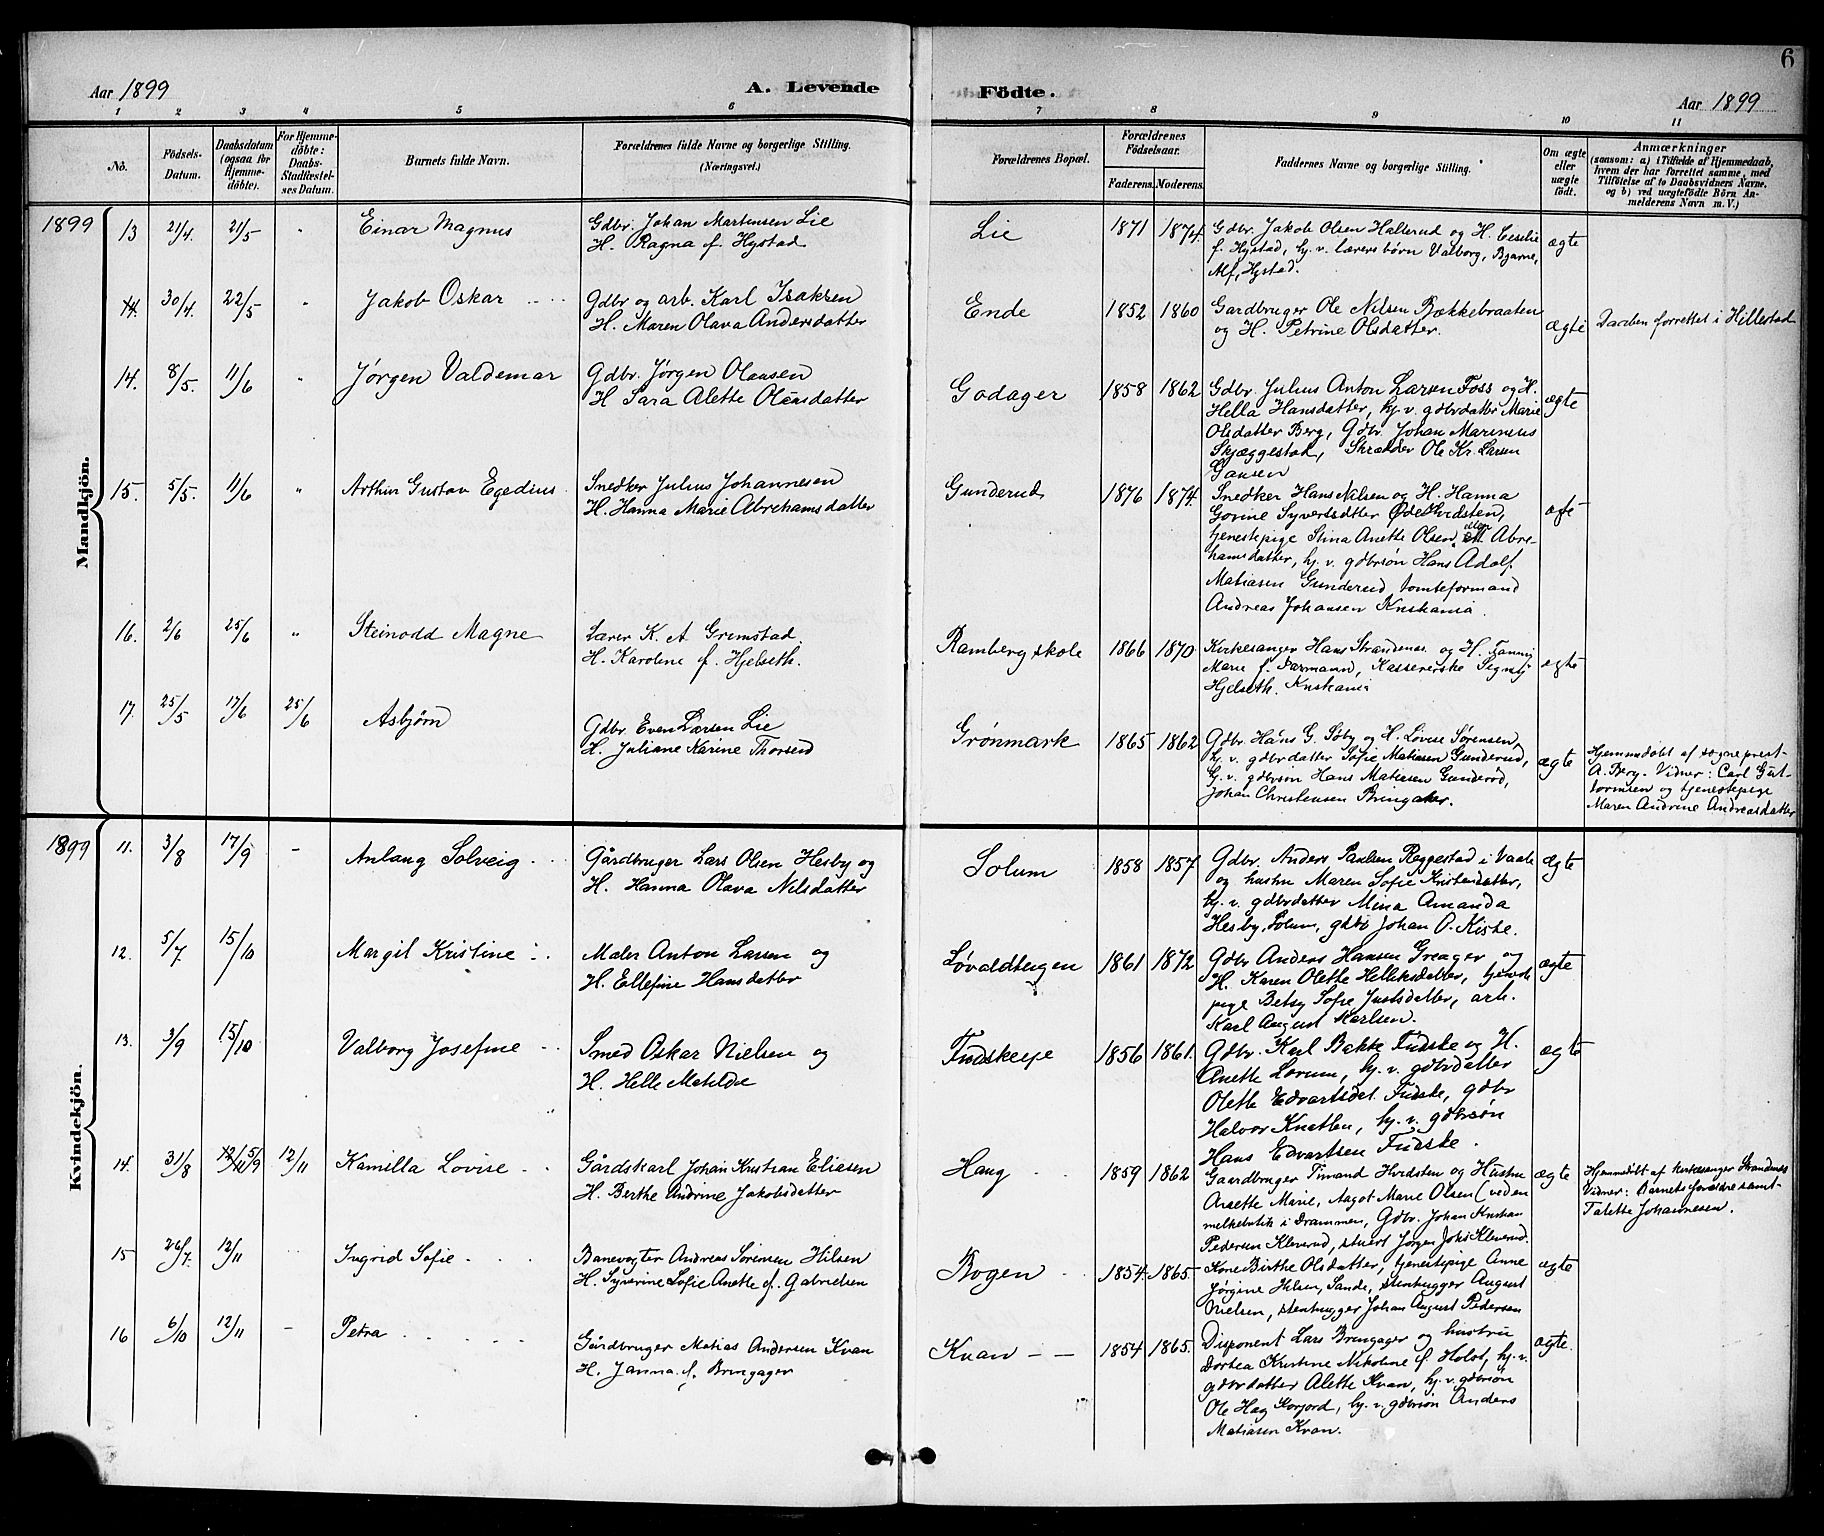 6
Aar 1899
A. Levende
Födte.
Aar 1899
1 2 3 4 5 6 7 8 9 10 11
No.
Födsels-
Datum.
Daabsdatum
(ogsaa för
Hjemme-
döbte).
For Hjemme-
döbte:
Daabs-
Stadfæstel-
ses Datum.
Barnets fulde Navn.
Forældrenes fulde Navne og borgerlige Stilling.
(Næringsvei.)
Forældrenes Bopæl.
Forældrenes
Födselsaar.
Faderens. Moderens.
Faddernes Navne og borgerlige Stilling.
Om ægte
eller
uægte
födt.
Anmærkninger
(saasom: a) i Tilfælde af Hjemmedaab,
hvem der har forrettet samme, med
Tilföielse af to Daabsvidners Navne,
og b) ved uægtefödte Börn An-
melderens Navn m. V.)
Mandkjön.
1899
13 21/4. 21/5 " Einar Magnus
Gdbr. Johan Martinsen Lie
H. Ragna f. Hystad
Lie 1871 1874.
Gdbr. Jakob Olsen Hallerud og H. Cecilie
f. Hystad, hj. v. lærers børn Valborg, Bjarne,
Alf, Hystad.
ægte
14. 30/4. 22/5 " Jakob Oskar
Gdbr og arb. Karl Isaksen
H. Maren Olava Andersdatter
Ende 1852 1860
Gardbruger Ole Nilsen Bækkebraaten
og H. Petrine Olsdatter.
ægte
Daaben forrettet i Hillestad
14. 8/5. 11/6 " Jørgen Valdemar
Gdbr. Jørgen Olausen
H. Sara Alette Olausdatter
Godager 1858 1862
Gdbr. Julius Anton Larsen Foss og H.
Hella Hansdatter, hj. v. gdbrdatter Marie
Olsdatter Berg, Gdbr. Johan Marinius
Skjæggestad, Skrædder Ole Kr. Larsen
Gausen
ægte
15. 5/5. 11/6 " Arthur Gustav Egedius.
Snedker Julius Johannesen
H. Hanna Marie Abrahamsdatter
Gunderud 1876 1874.
Snedker Hans Nilsen og H. Hanna
Govine Syvertsdtter Øde Hvidsten,
tjenestepige Stina Anette Olsen, Ellen M. Abra-
hamsdatter, hj. v. gdbrsøn Hans Adolf
Matiasen Gunderud tomteformand
Andreas Johansen Kristiania.
16. 2/6 25/6 " Steinodd Magne
Lærer K. A Grimstad.
H. Karoline f. Hjelseth.
Ramberg skole 1866 1870
Kirkesanger Hans Strandenes og H. Fanny
Marie f. Darmann, Kassererske Signy
Hjelseth. Kristiania
ægte
17. 25/5 17/6 25/6 Asbjørn
Gdbr. Even Larsen Lie
H. Juliane Karine Thorsen
Grønmark 1865 1862
Gdbr. Hans G. Søby og H. Lovise Sørensen,
hj. v. gdbrdatter Sofie Matiasen Gunderud,
hj. v. gdbrsøn Hans Matiasen Gunderød,
Johan Christensen Bringaker.
ægte
Hjemmedøbt af sogneprest
A. Berg. Vidner: Carl Gut-
tormsen og tjenestepige
Maren Andrine Andreasdatter
Kvindekjön.
1899
11. 3/8 17/9 - Anlaug Solveig
Gårdbruger Lars Olsen Hesby og
H. Hanna Olava Nilsdatter
Solum 1858 1857.
Gdbr. Anders Paulsen Reggestad i Vaale
og hustru Maren Sofie Kristensdatter,
hj. v. gdbrdatter Mina Amanda
Hesby, Solum, gdbr Johan O. Kiste.
ægte
12. 5/7 15/10 Margit Kristine
Maler Anton Larsen og
H. Ellefine Hansdatter
Løvaldbergen 1861 1872
Gdbr Anders Hansen Greager og
H. Karen Olette Helleksdatter, tjeneste
pige Betsy Sofie Justsdatter, arb.
Karl August Karlsen.
ægte
13. 3/9 15/10 Valborg Josefine
Smed Oskar Nielsen og
H. Helle Matilde
1856 1861.
Gdbr. Karl Bakke Fudske og H.
Anette Sorum, hj. v. gdbrdatter
Olette Edvartsdat. Fudske, gdbr
Halvor Knatten, hj. v. gdbrsøn
Hans Edvartsen Fudske.
ægte
14. 31/8 12/11 5/9 12/11 Kamilla Lovise
Gårdskarl Johan Kristian Eliasen
H. Berthe Andrine Jakobsdatter
Haug 1859 1862
Gaardbruger Timand Hvidsten og Hustru
Anette Marie, Aagot Marie Olsen (ved en
melkebutik i Drammen, Gdbr. Johan Kristian
Pedersen Kleverud, stuert Jørgen Johs Kleverud.
ægte
Hjemmedøbt af kirkesanger Strandenes
Vidner: Barnets forældre samt
Talette Johannesen.
15 26/7. 12/11 Ingrid Sofie
Banevogter Andreas Sørensen Hilsen
H. Syverine Sofie Anette f. Gabrielsen
Bogen 1854. 1865.
Kone Birthe Olsdatter, tjenestepige Anne
Jørgine Hilsen, Sande, stenhugger August
Nielsen, stenhugger Johan August Pedersen
ægte
16 6/10 12/11 - Petra
Gårdbruger Matias Andersen Kvan
H. Janna f. Bringager
Kvan 1854 1865.
Disponent Lars Bringager og hustru
Dortea Kristine Nikoline f. Holst, hj. v.
gdbrdatter Alette Kvan, hj. v. gdbrsøn
Ole Hag Korsjord, hj. v. gdbrsøn Anders
Matiasen Kvan.
ægte.